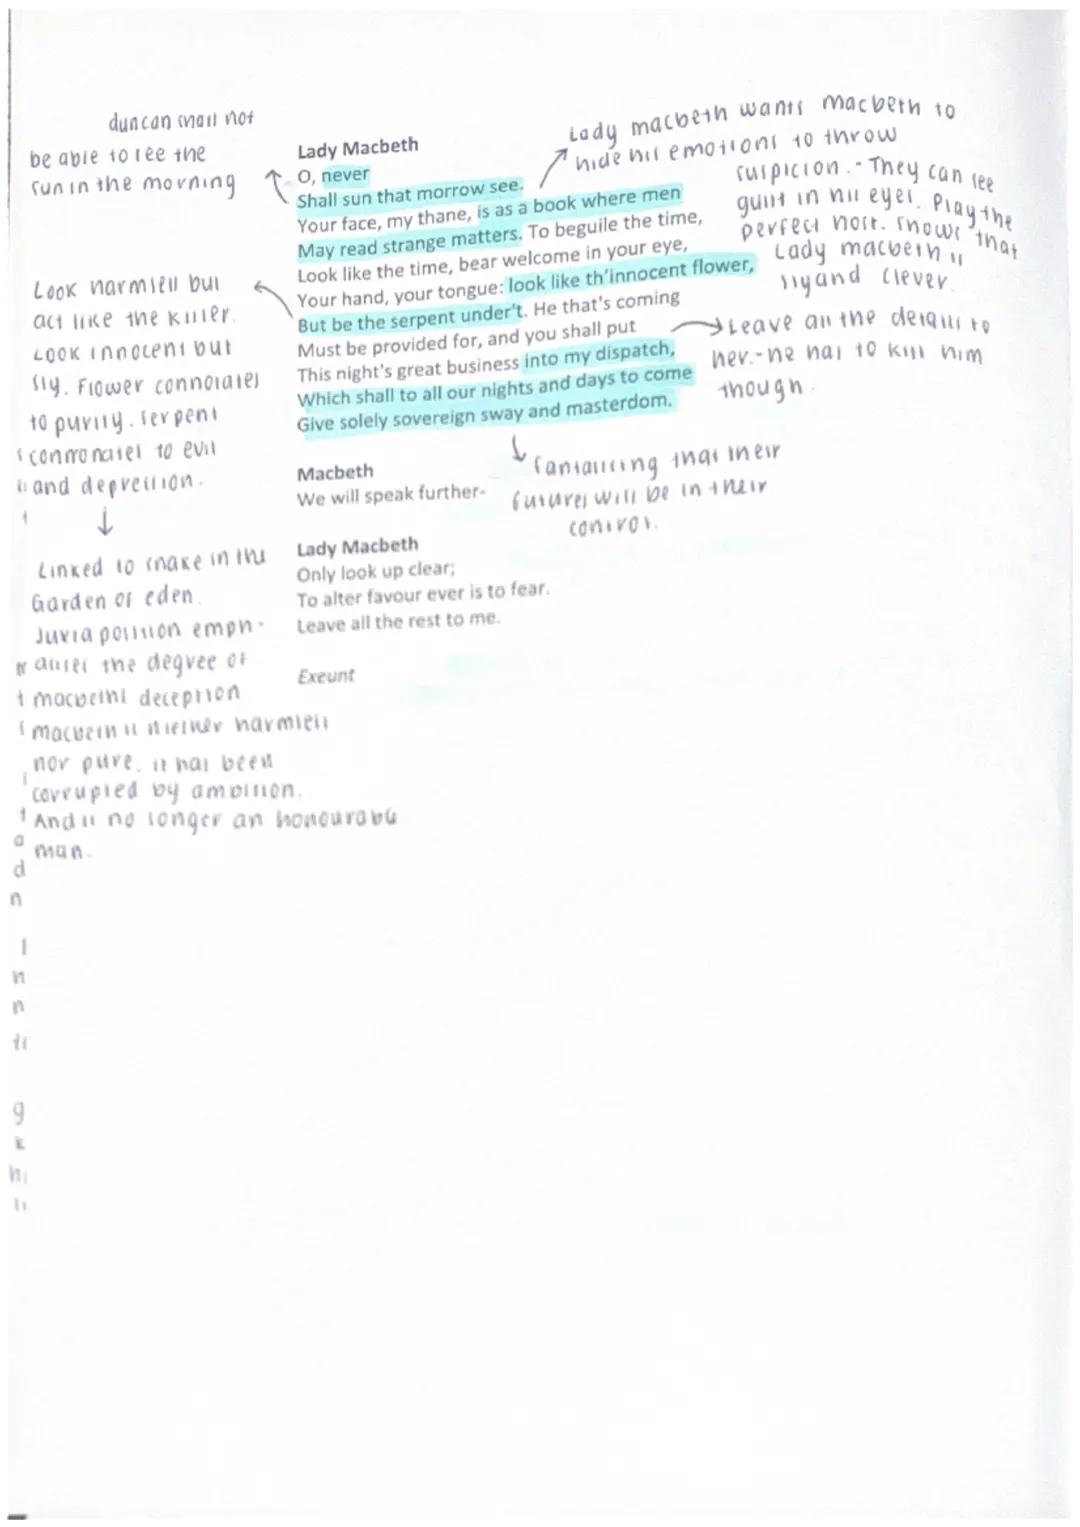 duncan shall not
be able to see the
sun in the morning
Lady Macbeth
O, never
Shall sun that morrow see.
Your face, my thane, is as a book where men
May read strange matters. To beguile the time,
Look like the time, bear welcome in your eye,
Your hand, your tongue: look like th'innocent flower,
But be the serpent under't. He that's coming
Must be provided for, and you shall put
This night's great business into my dispatch,
Which shall to all our nights and days to come
Give solely sovereign sway and masterdom.
Lady macbeth wants macbeth to
hide his emotions to throw
suspicion. - They can see
guilt in his eyes. Play the
perfect host. Shows that
Lady macbeth is
sly and clever.
Leave all the details to
her. - he has to kill him
though.
Look harmless but
act like the killer.
Look innocent but
sly. Flower connotates
to purity. serpent
connonates to evil
and depression.
Linked to snake in the
Garden of eden.
Juxtaposition emph-
asises the degree of
macbeths deception
macbeth is niether harmless
nor pure. it has been
corrupted by ambition.
And is no longer an honourable
man.
fantasising that their
futures will be in their
control.
Macbeth
We will speak further-
Lady Macbeth
Only look up clear;
To alter favour ever is to fear.
Leave all the rest to me.
Exeunt